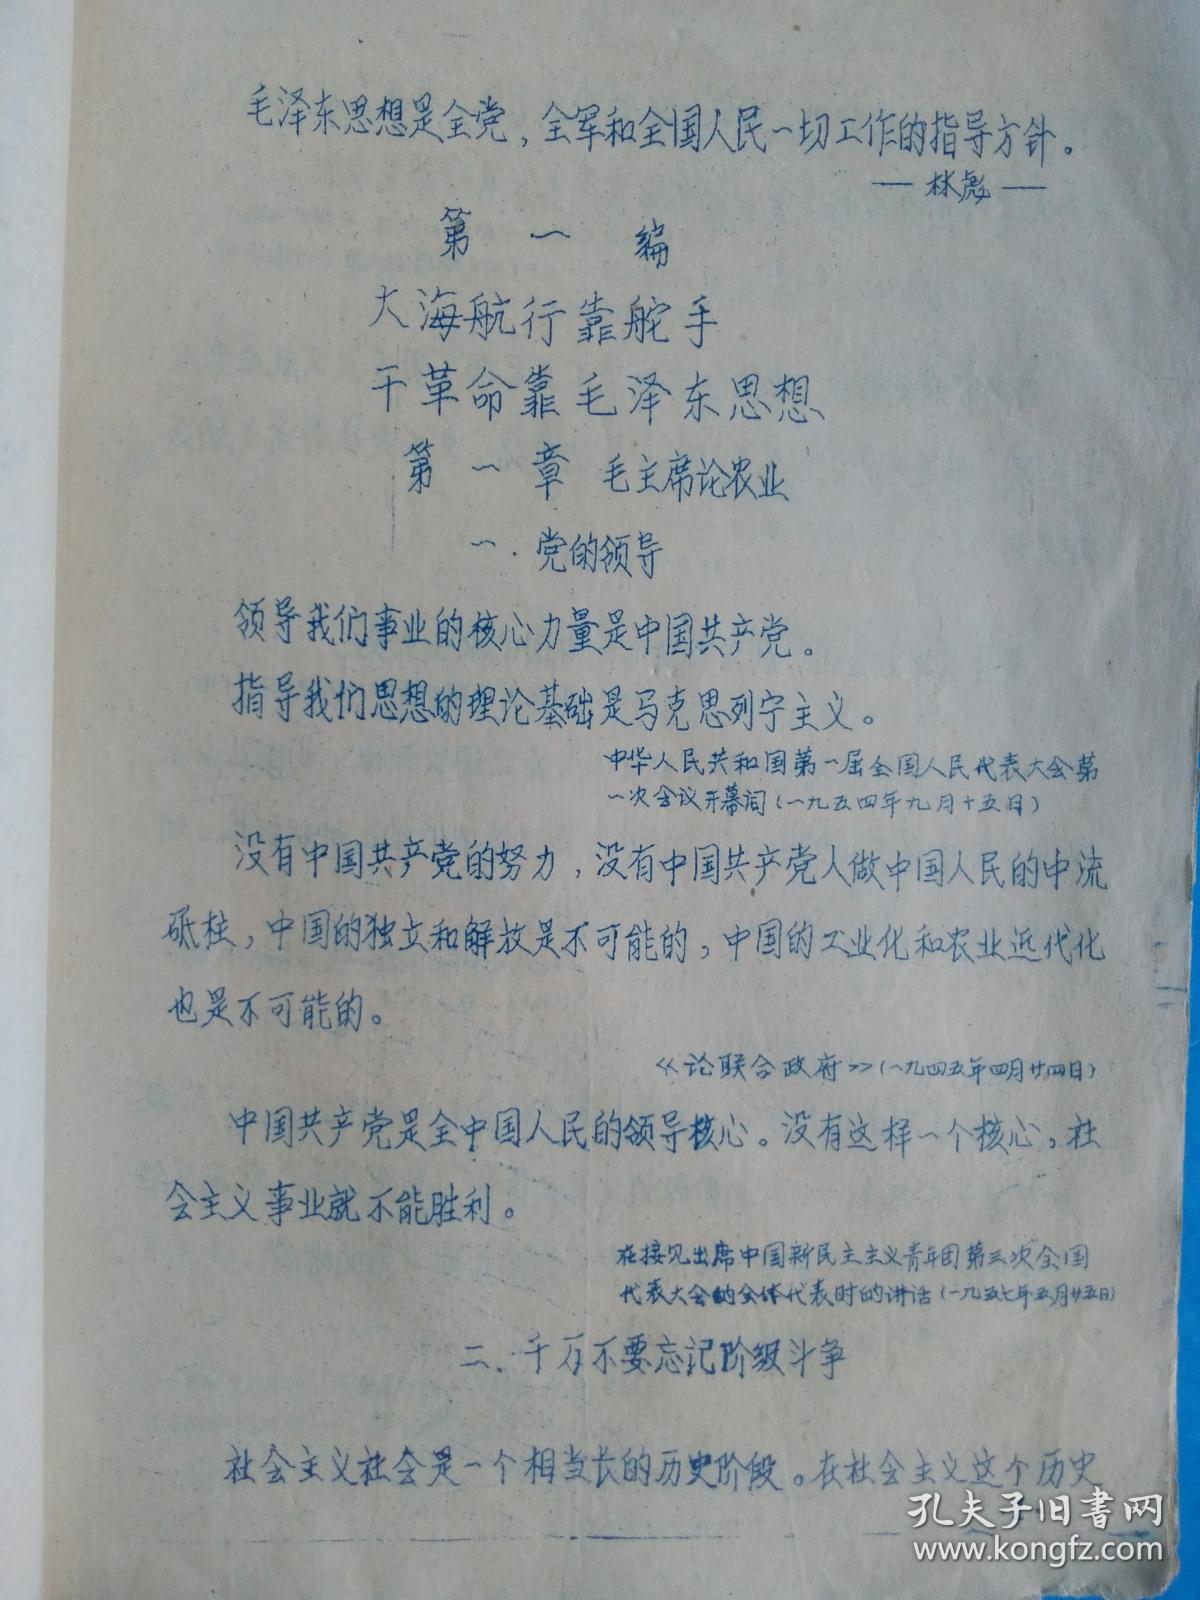 毛泽东思想是全党，全军和全国人民一切工作的指导方针。
— 林彪 —
第一编
大海航行靠舵手
干革命靠毛泽东思想
第一章 毛主席论农业
一．党的领导
领导我们事业的核心力量是中国共产党。
指导我们思想的理论基础是马克思列宁主义。
中华人民共和国第一届全国人民代表大会第
一次会议开幕词（一九五四年九月十五日）
没有中国共产党的努力，没有中国共产党人做中国人民的中流
砥柱，中国的独立和解放是不可能的，中国的工业化和农业近代化
也是不可能的。
《论联合政府》（一九四五年四月廿四日）
中国共产党是全中国人民的领导核心。没有这样一个核心，社
会主义事业就不能胜利。
在接见出席中国新民主主义青年团第三次全国
代表大会的全体代表时的讲话（一九五七年五月廿五日）
二．千万不要忘记阶级斗争
社会主义社会是一个相当长的历史阶段。在社会主义这个历史
孔夫子旧书网
www.kongfz.com